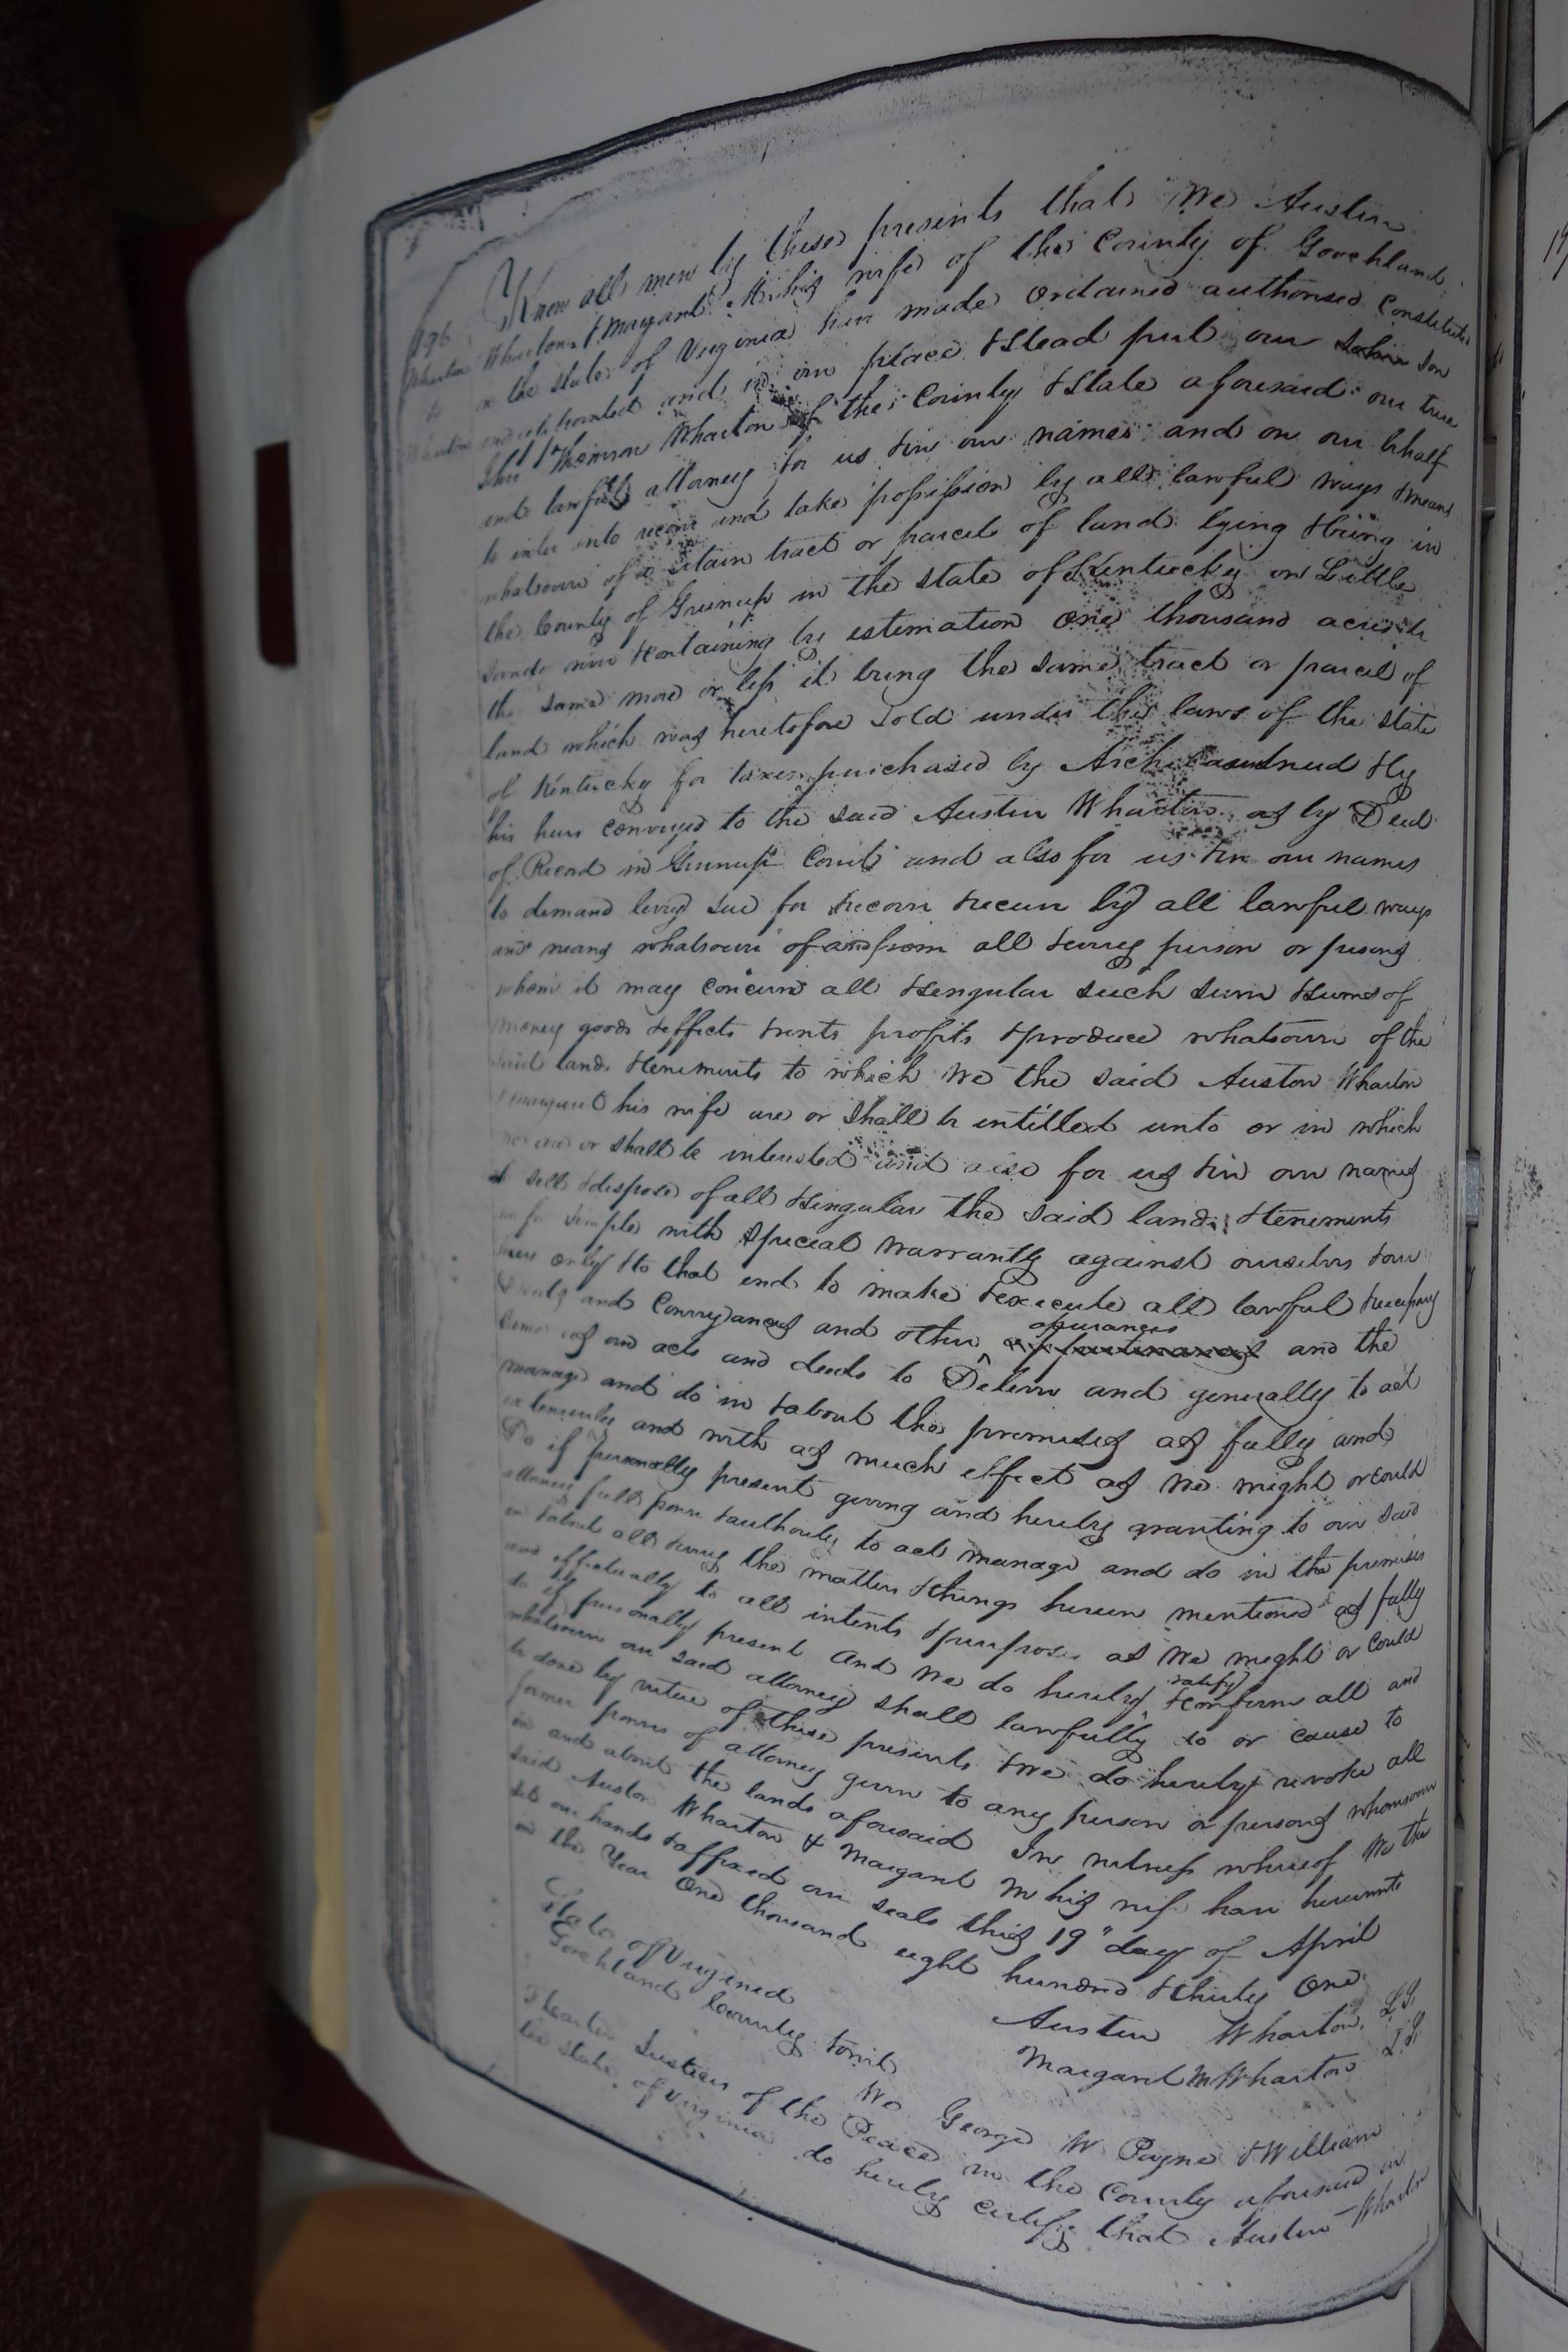 Know all men by these presents that We Austin
196
Wharton & Margaret M his wife of the County of Goochland
Wharton
in the state of Virginia have made ordained authorised Constituted
to
and in our place & Stead put our son
Wharton
John Thomson Wharton of the County & State aforesaid our true
and lawful attorney for us & in our names and on our behalf
to enter into recover and take possession by all lawful ways & means
whatsoever of a certain tract or parcel of land lying & being in
the County of Greenup in the State of Kentucky on Little
Sandy river & Containing by estimation One thousand acres be
the same more or less it being the same tract or parcel of
land which was heretofore Sold under the laws of the State
of Kentucky for taxes purchased by & by
his heirs Conveyed to the said Austin Wharton as by Deed
of Record in Greenup Court and also for us & in our names
to demand levy sue for & recover & receive by all lawful ways
and means whatsoever of and from all & every person or persons
whom it may Concern all & singular such sum & sums of
money goods & effects & rents profits & produce whatsoever of the
said land & tenements to which We the said Auston Wharton
& Margaret his wife are or Shall be intitled unto or in which
we are or shall be interested and also for us & in our names
to sell & dispose of all & singular the said land & tenements
in fee simple with Special warranty against ourselves & our
heirs only & to that end to make & execute all lawful & necessary
Deeds and Conveyances and other assurances and the
same as our acts and deeds to Deliver and generally to act
manage and do in & about the premises as fully and
extensively and with as much effect as we might or Could
Do if personally present giving and hereby granting to our said
attorney full power & authority to act manage and do in the premises
in & about all & every the matters & things herein mentioned as fully
and effectually to all intents & purposes as We might or Could
do if personally present And We do hereby ratify & Confirm all and
whatsoever our said attorney shall lawfully do or cause to
be done by virtue of these presents & We do hereby revoke all
former powers of attorney given to any person or persons whomsoever
in and about the lands aforesaid In witness whereof We the
said Auston Wharton & Margaret M his wife have hereunto
set our hands & affixed our seals this 19" day of April
in the Year One thousand eight hundred & thirty One
Austin Wharton L.S.
Margaret M Wharton L.S.
State of Virginia
Goochland County towit
We George W Payne & William
Justices of the Peace in the County aforesaid in
the State of Virginia do hereby certify that Austin Wharton